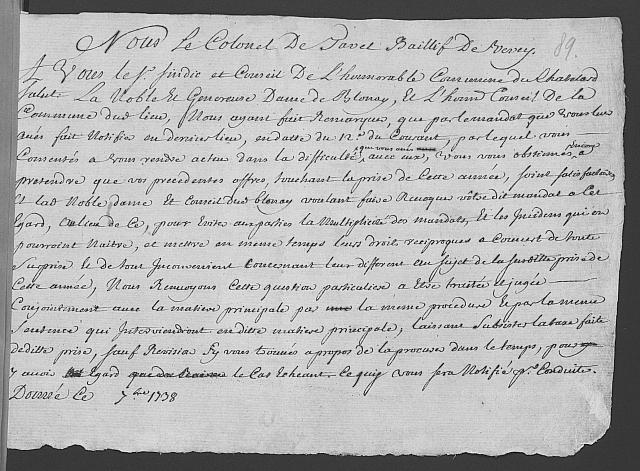 89.
Nous Le Colonel De Tavel Baillif De Vevey.
A Vous le Sr. Sindic et Conseil De L'honnorable Commune du Chatelard
Salut. La Noble Et Genereuse Dame de Blonay, Et L'honn Conseil de la
Commune dud lieu, Nous ayant fait Remarquer, que par le mandat que vous leur
avés fait Notifié en dernier lieu, en datte du 12e. du Courant, par lequel vous
Consentés a vous rendre acteur dans la difficulté que vous avés avec eux, vous vous obstinés encore a
pretendre que vos precedentes offres, touchant la prise de Cette année, soient satisfactoires,
Et lad Noble Dame et Conseil du Blonay voulant faire Revoquer vôtre dit mandat a Cet
Egard, au lieu de Ce, pour Eviter aux parties la Multiplicité des mandats, Et les Incidens qui en
pourroient Naitre, et mettre en meme temps leurs droits reciproques a Couvert de toute
surprise Et de tout Inconvenient Concernant leur different au sujet de la susditte prise de
Cette année, Nous Renvoyons Cette question particuliere a Etre traitée et jugée
Conjointement avec la matiere principale par la même procedure Et par la meme
Sentence qui Interviendront en ditte matiere principale; laissant Subsister la taxe faite
de ditte prise, sauf Revision sy vous trouvés a propos de la procurer dans le temps, pour
y avoir Egard le Cas Echeant. Ce qui vous sera Notifié pr. Conduite.
Donné Ce 7bre 1738